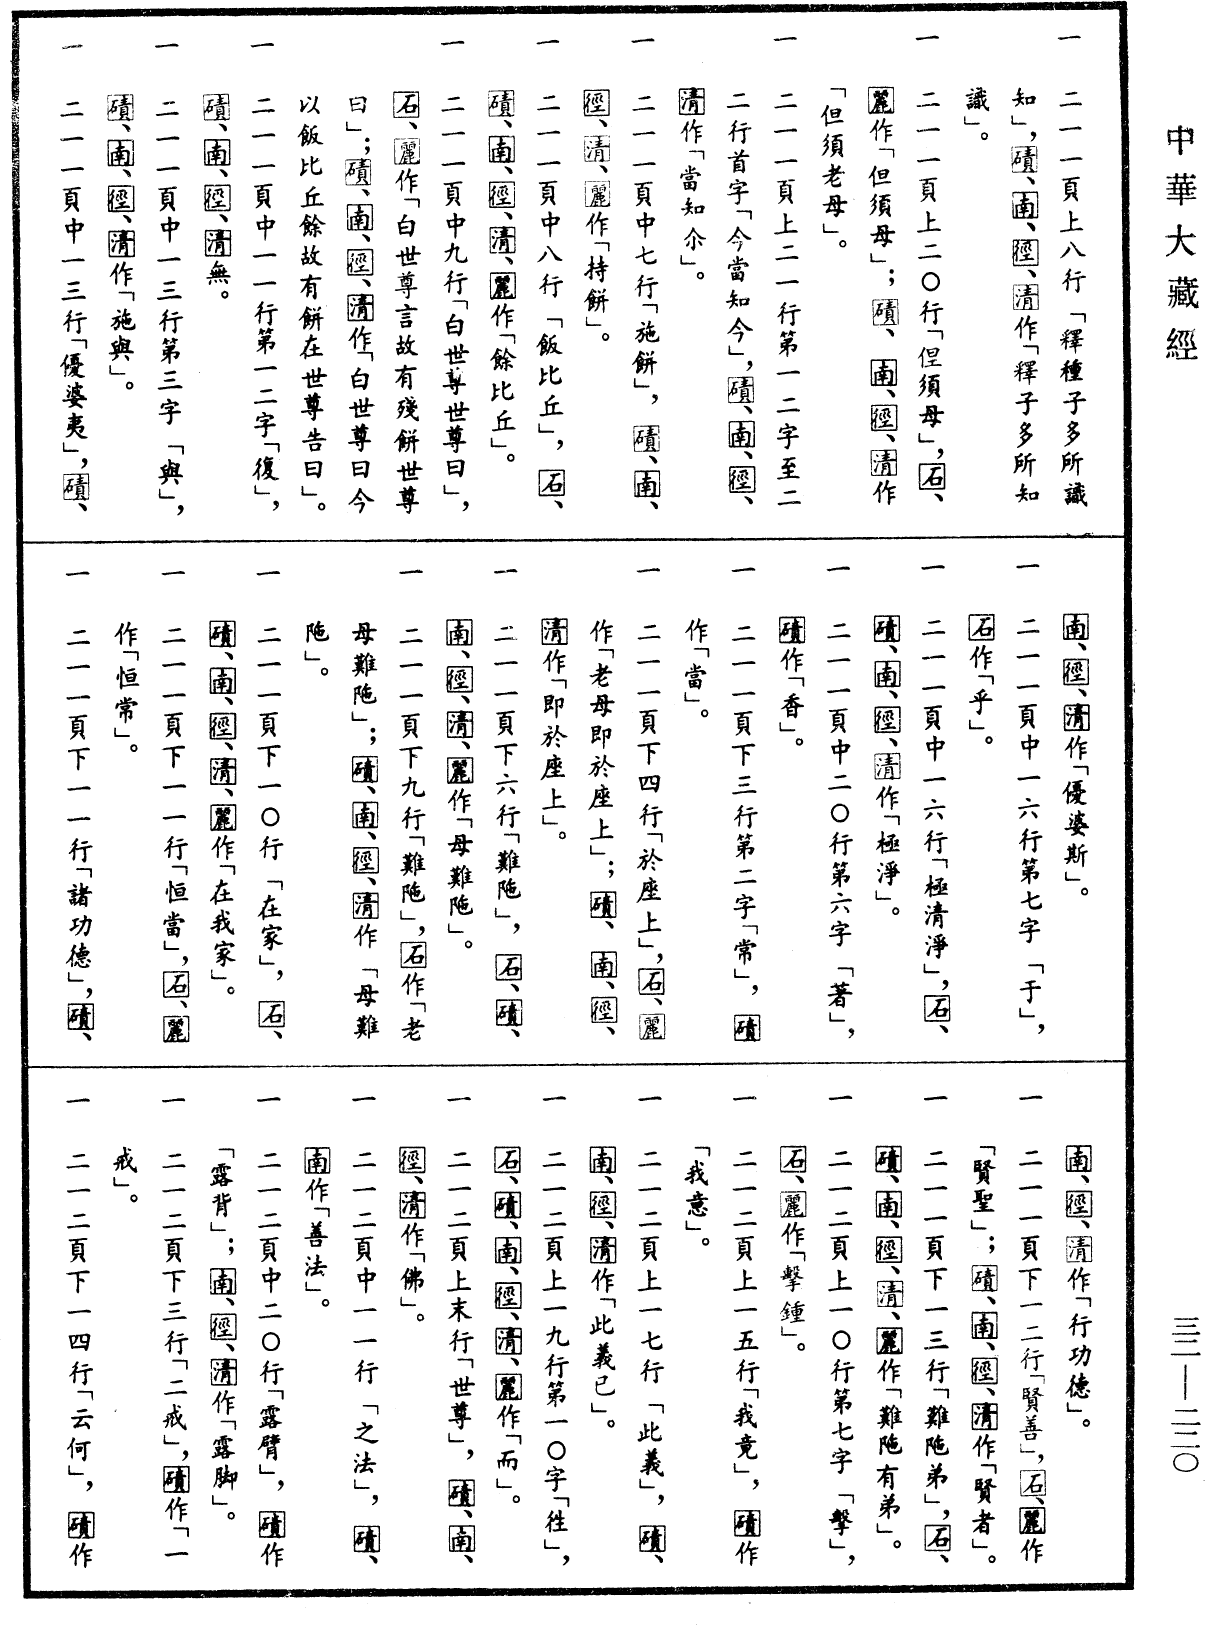 中華大藏經
一　二一一頁上八行「釋種子多所識
知」，磧、南、徑、清作「釋子多所知
識」。
一　二一一頁上二〇行「但須母」，石、
麗作「但須母」；磧、南、徑、清作
「但須老母」。
一　二一一頁上二一行第一二字至二
二行首字「今當知今」，磧、南、徑、
清作「當知尒」。
一　二一一頁中七行「施餅」，磧、南、
徑、清、麗作「持餅」。
一　二一一頁中八行「飯比丘」，石、
磧、南、徑、清、麗作「餘比丘」。
一　二一一頁中九行「白世尊世尊曰」，
石、麗作「白世尊言故有殘餅世尊
曰」；磧、南、徑、清作「白世尊曰今
以飯比丘餘故有餅在世尊告曰」。
一　二一一頁中一一行第一二字「復」，
磧、南、徑、清無。
一　二一一頁中一三行第三字「與」，
磧、南、徑、清作「施與」。
一　二一一頁中一三行「優婆夷」，磧、
南、徑、清作「優婆斯」。
一　二一一頁中一六行第七字「于」，
石作「乎」。
一　二一一頁中一六行「極清淨」，石、
磧、南、徑、清作「極淨」。
一　二一一頁中二〇行第六字「著」，
磧作「香」。
一　二一一頁下三行第二字「常」，磧
作「當」。
一　二一一頁下四行「於座上」，石、麗
作「老母即於座上」；磧、南、徑、
清作「即於座上」。
一　二一一頁下六行「難陁」，石、磧、
南、徑、清、麗作「母難陁」。
一　二一一頁下九行「難陁」，石作「老
母難陁」；磧、南、徑、清作「母難
陁」。
一　二一一頁下一〇行「在家」，石、
磧、南、徑、清、麗作「在我家」。
一　二一一頁下一一行「恒當」，石、麗
作「恒常」。
一　二一一頁下一一行「諸功德」，磧、
南、徑、清作「行功德」。
一　二一一頁下一二行「賢善」，石、麗作
「賢聖」；磧、南、徑、清作「賢者」。
一　二一一頁下一三行「難陁弟」，石、
磧、南、徑、清、麗作「難陁有弟」。
一　二一二頁上一〇行第七字「擊」，
石、麗作「擊鍾」。
一　二一二頁上一五行「我竟」，磧作
「我意」。
一　二一二頁上一七行「此義」，磧、
南、徑、清作「此義已」。
一　二一二頁上一九行第一〇字「徃」，
石、磧、南、徑、清、麗作「而」。
一　二一二頁上末行「世尊」，磧、南、
徑、清作「佛」。
一　二一二頁中一一行「之法」，磧、
南作「善法」。
一　二一二頁中二〇行「露臂」，磧作
「露背」；南、徑、清作「露脚」。
一　二一二頁下三行「二戒」，磧作「一
戒」。
一　二一二頁下一四行「云何」，磧作
三二—二二〇